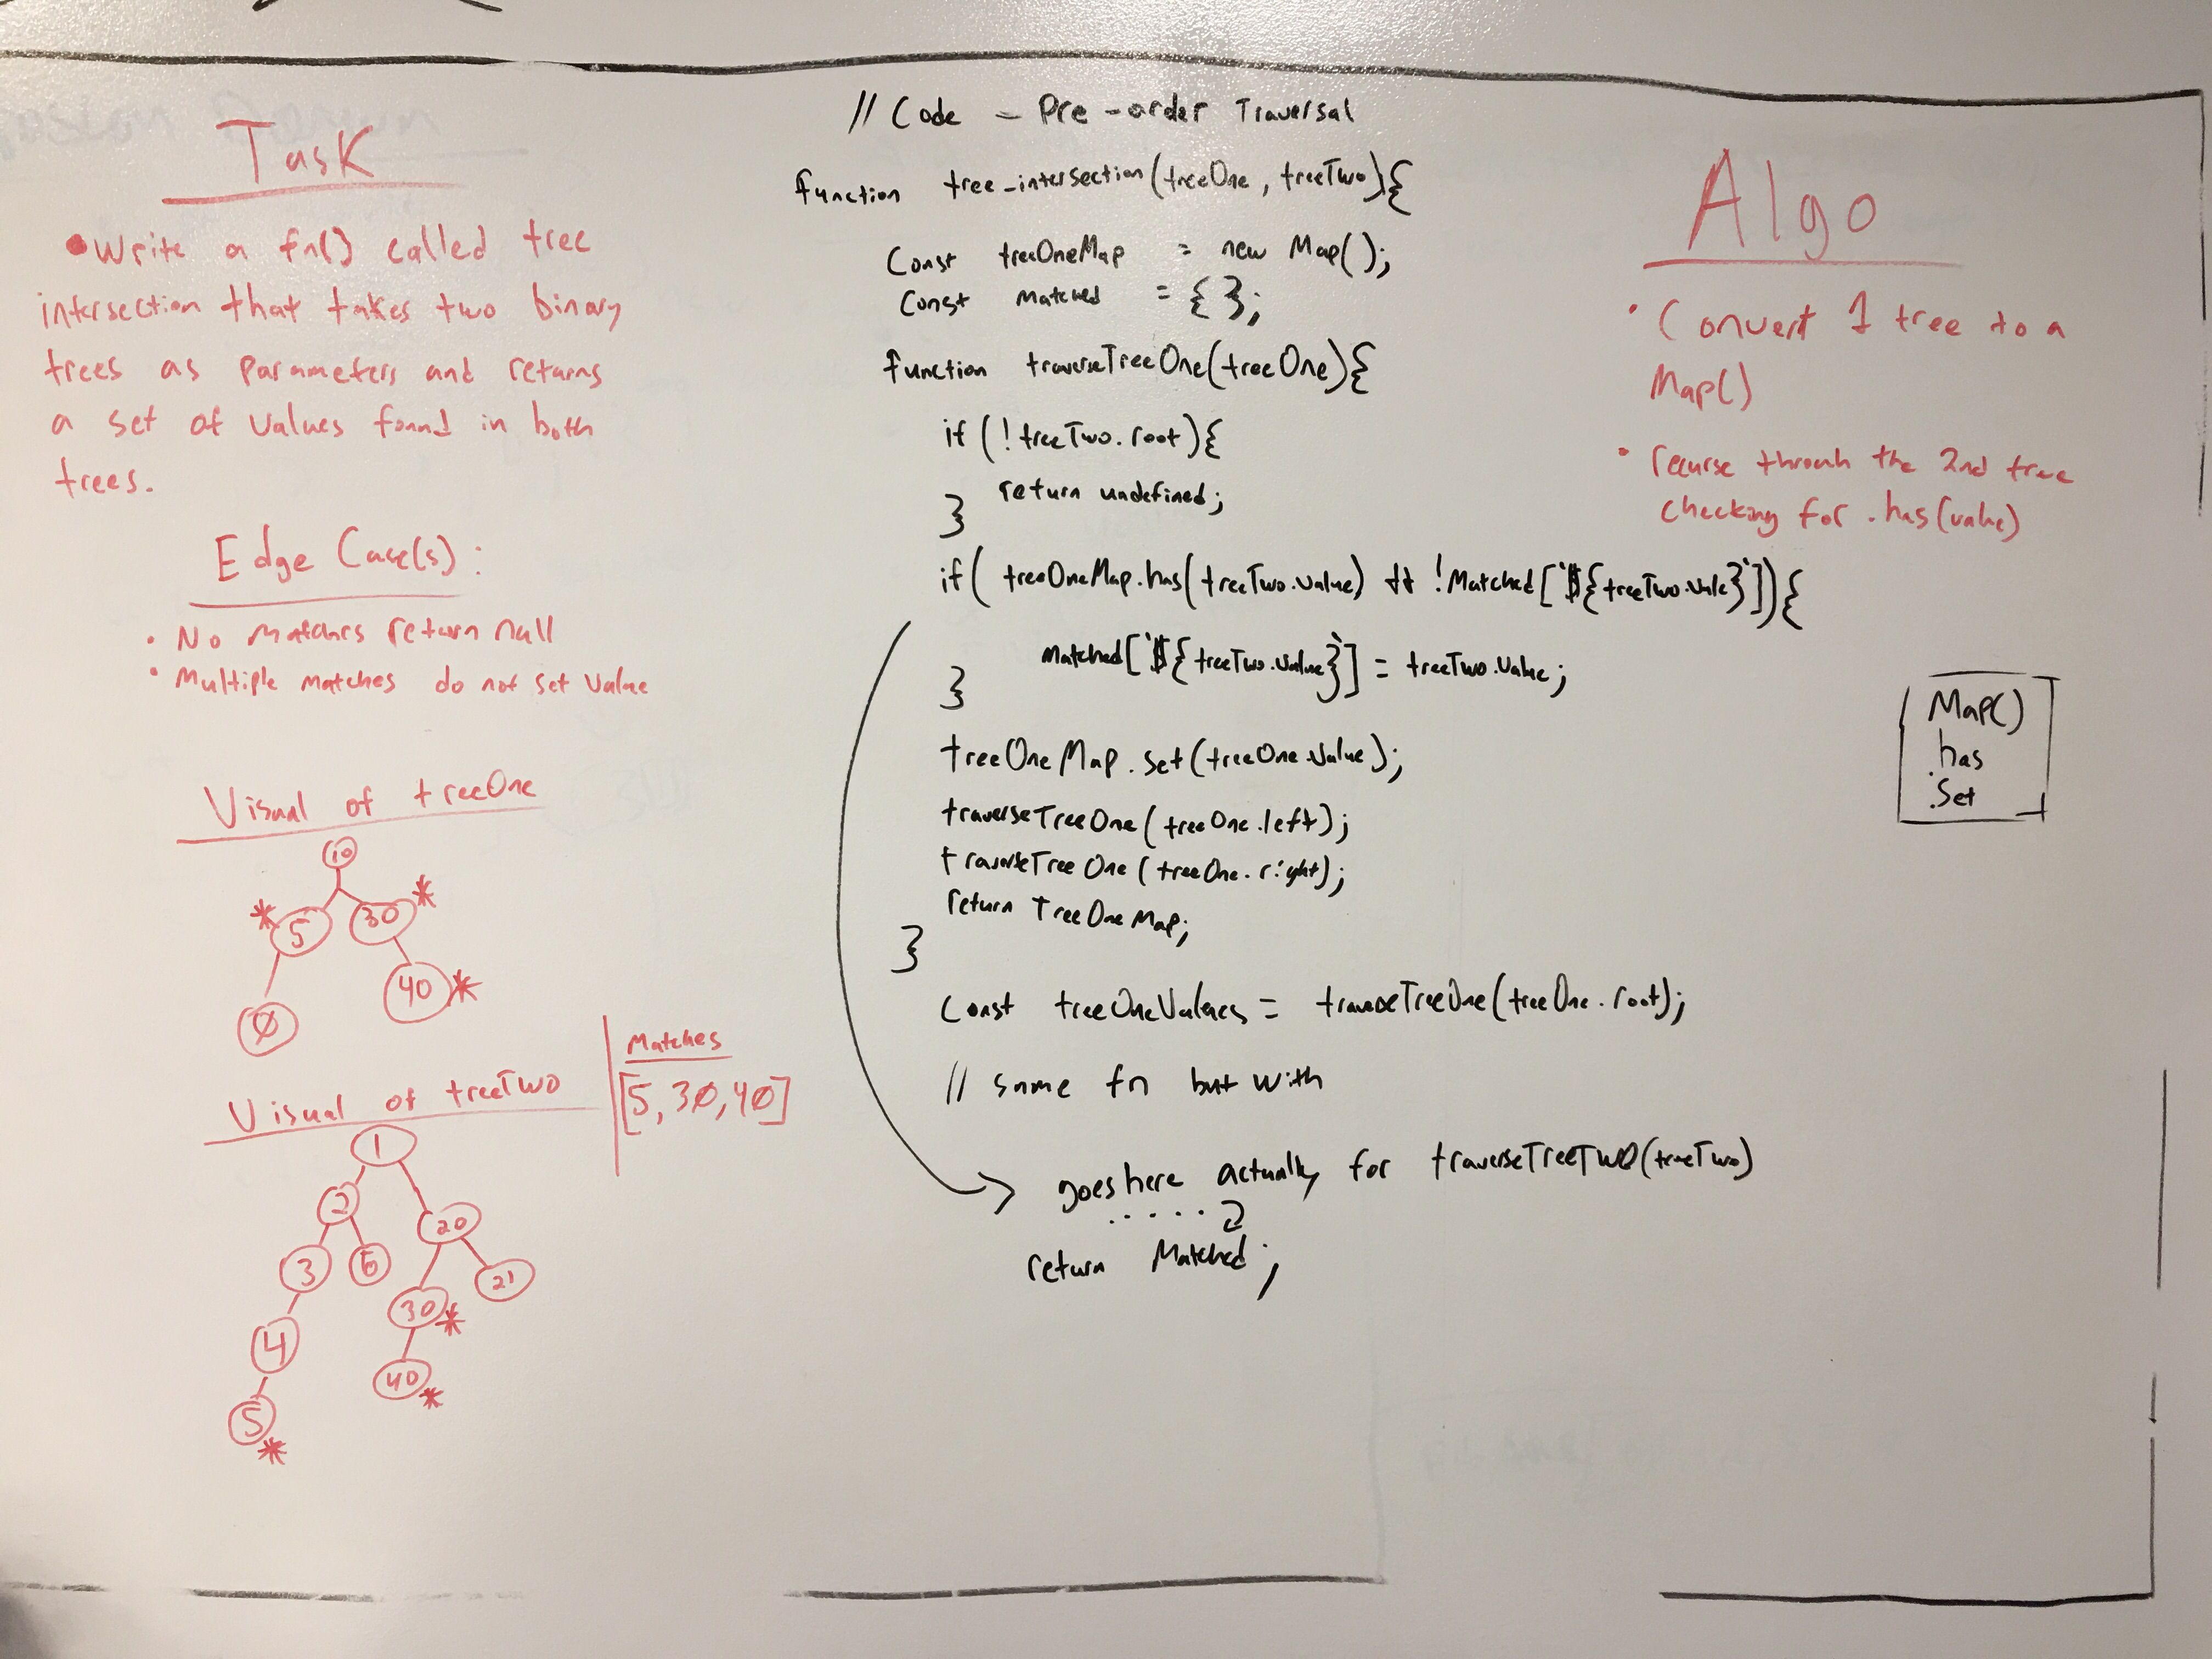 Task
• Write a fn() called tree
intersection that takes two binary
trees as parameters and returns
a set of values found in both
trees.
Edge Case(s):
• No matches return null
• Multiple matches do not set value
Visual of treeOne
10
* 5 30 *
0 40 *
Visual of treeTwo
1
2 20
3 6 21
4 30 *
5 * 40 *
Matches
[5, 30, 40]
// Code - Pre-order Traversal
function tree_intersection(treeOne, treeTwo){
Const treeOneMap = new Map();
Const matched = { };
function traverseTreeOne(treeOne){
if (!treeTwo.root){
return undefined;
}
if( treeOneMap.has(treeTwo.value) && !Matched[`${treeTwo.vale}`]){
matched[`${treeTwo.value}`] = treeTwo.value;
}
treeOneMap.set(treeOne.value);
traverseTreeOne(treeOne.left);
traverseTreeOne(treeOne.right);
return TreeOneMap;
}
Const treeOneValues = traverseTreeOne(treeOne.root);
// same fn but with
goes here actually for traverseTreeTwo(treeTwo)
.....
return Matched;
Algo
• Convert 1 tree to a
Map()
• recurse through the 2nd tree
checking for .has(value)
Map()
.has
.Set